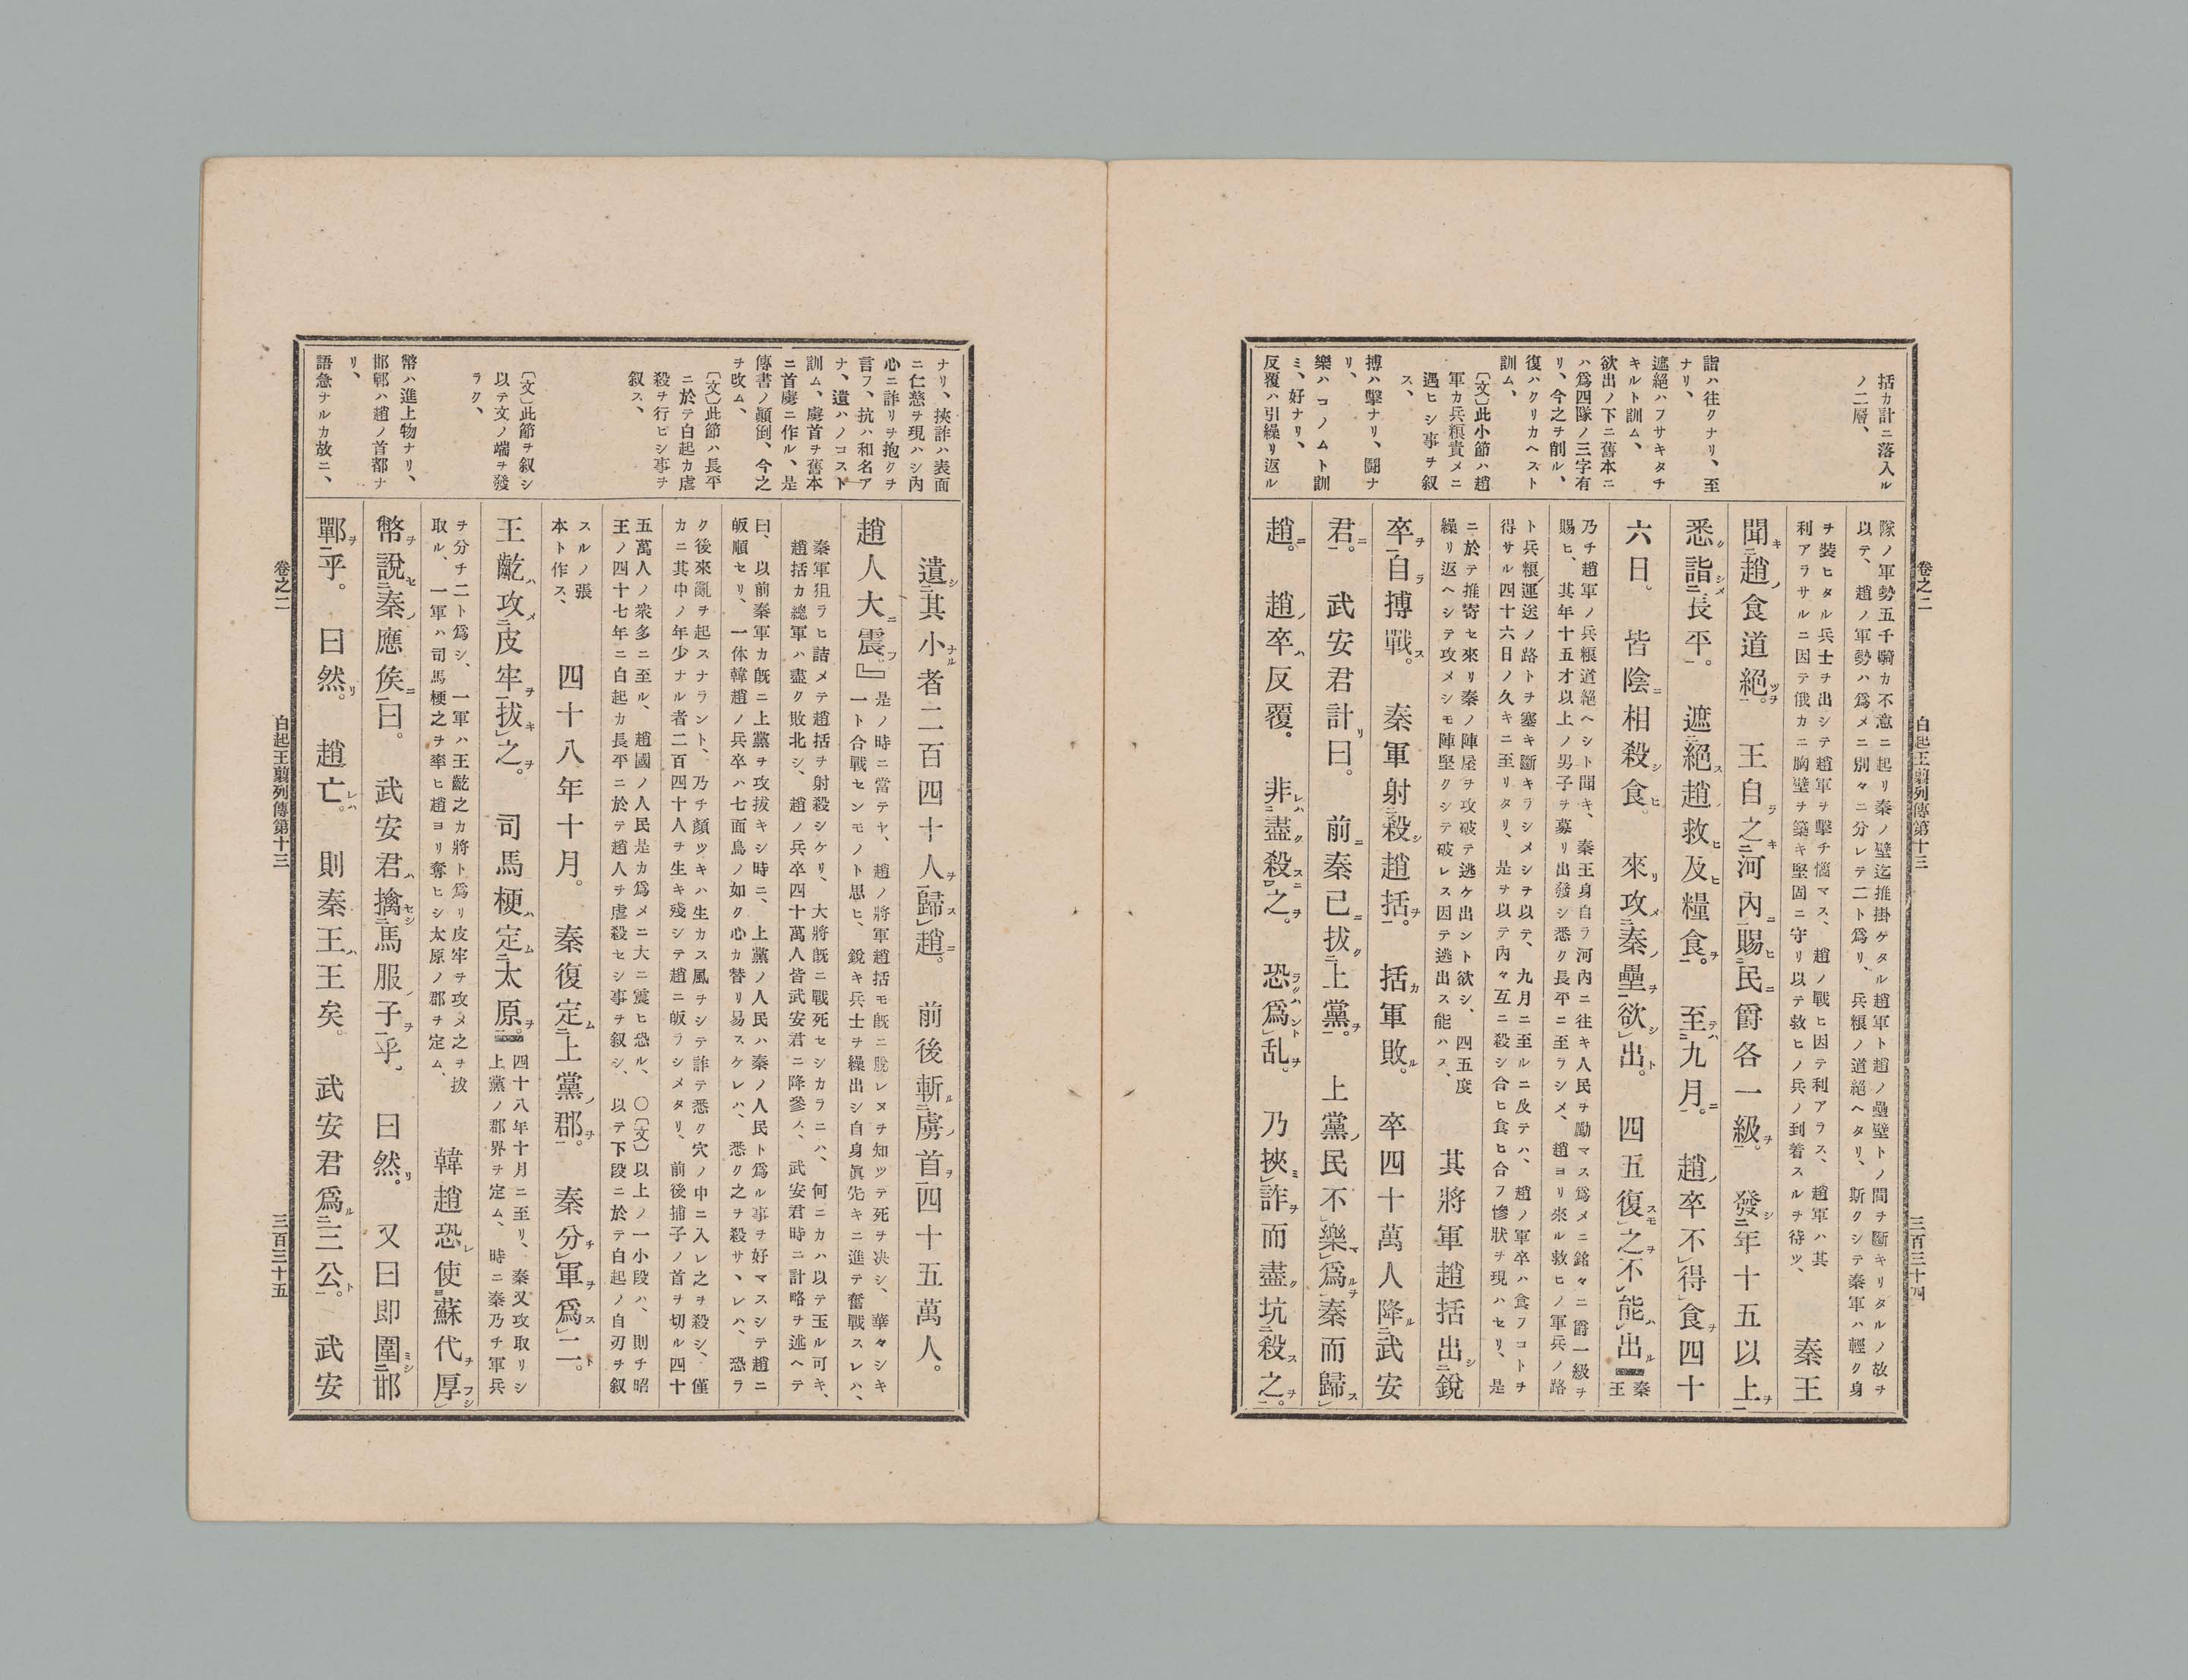 卷之二
白起王翦列傳第十三
三百三十四
括カ計ニ落入ル
ノ二層、
詣ハ往クナリ、至
ナリ、
遮絕ハフサキタチ
キルト訓ム、
欲出ノ下ニ舊本ニ
ハ爲四隊ノ三字有
リ、今之ヲ削ル、
復ハクリカヘスト
訓ム、
〔文〕此小節ハ趙
軍カ兵粮責メニ
遇ヒシ事ヲ叙
ス、
搏ハ擊ナリ、鬪ナ
リ、
樂ハコノムト訓
ミ、好ナリ、
反覆ハ引繰リ返ル
隊ノ軍勢五千騎カ不意ニ起リ秦ノ壁迄推掛ケタル趙軍ト趙ノ壘壁トノ間ヲ斷キリタルノ故ヲ
以テ、趙ノ軍勢ハ爲メニ別々ニ分レテ二ト爲リ、兵粮ノ道絕ヘタリ、斯クシテ秦軍ハ輕ク身
ヲ裝ヒタル兵士ヲ出シテ趙軍ヲ擊チ惱マス、趙ノ戰ヒ因テ利アラス、趙軍ハ其
利アラサルニ因テ俄カニ胸壁ヲ築キ堅固ニ守リ以テ救ヒノ兵ノ到着スルヲ待ツ、
秦王
聞キ趙ノ食道絕ツヲ。王自ラ之キ河內ニ賜ヒ民ニ爵各一級ヲ。發シ年十五以上ヲ
悉ク詣シメ長平。遮絕ス趙救ヒ及ヒ糧食ヲ。至テハ九月ニ。趙ノ卒不得食ヲ四十
六日。皆陰ニ相殺シ食ヒ。來リ攻メ秦ノ壘ヲ欲シ出ト。四五復スモ之ヲ不能ハ出ル
秦
王
乃チ趙軍ノ兵粮道絕ヘシト聞キ、秦王身自ラ河內ニ往キ人民ヲ勵マス爲メニ銘々ニ爵一級ヲ
賜ヒ、其年十五才以上ノ男子ヲ募リ出發シ悉ク長平ニ至ラシメ、趙ヨリ來ル救ヒノ軍兵ノ路
ト兵粮運送ノ路トヲ塞キ斷キラシメシヲ以テ、九月ニ至ルニ及テハ、趙ノ軍卒ハ食フコトヲ
得サル四十六日ノ久キニ至リタリ、是ヲ以テ內々互ニ殺シ合ヒ食ヒ合フ慘狀ヲ現ハセリ、是
ニ於テ推寄セ來リ秦ノ陣屋ヲ攻破テ逃ケ出ント欲シ、四五度
繰リ返ヘシテ攻メシモ陣堅クシテ破レス因テ逃出ス能ハス、
其將軍趙括出シ銳
卒ヲ自ラ搏戰ス。秦軍射殺シ趙括ヲ。括カ軍敗ル。卒四十萬人降ル武安
君ニ。武安君計リ曰。前ニ秦已ニ拔ク上黨ヲ。上黨ノ民不樂マ爲ルヲ秦而歸ス
趙ニ。趙ノ卒ハ反覆。非レハ盡ク殺スニ之ヲ。恐ラクハ爲ント乱ヲ。乃挾ミ詐ヲ而盡ク坑殺ス之ヲ。
ナリ、挾詐ハ表面
ニ仁慈ヲ現ハシ內
心ニ詐リヲ抱クヲ
言フ、坑ハ和名ア
ナ、遺ハノコスト
訓ム、虜首ヲ舊本
ニ首虜ニ作ル、是
傳書ノ顚倒、今之
ヲ改ム、
〔文〕此節ハ長平
ニ於テ白起カ虐
殺ヲ行ヒシ事ヲ
叙ス、
〔文〕此節ヲ叙シ
以テ文ノ端ヲ發
ラク、
幣ハ進上物ナリ、
邯鄲ハ趙ノ首都ナ
リ、
語急ナルカ故ニ、
遺シ其小ナル者二百四十人ヲ歸ス趙ニ。前後斬ル虜ノ首ヲ四十五萬人。
趙人大ニ震フ。』
是ノ時ニ當テヤ、趙ノ將軍趙括モ旣ニ脫レヌヲ知ツテ死ヲ决シ、華々シキ
一ト合戰センモノト思ヒ、銳キ兵士ヲ繰出シ自身眞先キニ進テ奮戰スレハ、
秦軍狙ラヒ詰メテ趙括ヲ射殺シケリ、大將旣ニ戰死セシカラニハ、何ニカハ以テ玉ル可キ、
趙括カ總軍ハ盡ク敗北シ、趙ノ兵卒四十萬人皆武安君ニ降參ス、武安君時ニ計略ヲ逃ヘテ
曰、以前秦軍カ旣ニ上黨ヲ攻拔キシ時ニ、上黨ノ人民ハ秦ノ人民ト爲ル事ヲ好マスシテ趙ニ
皈順セリ、一体韓趙ノ兵卒ハ七面鳥ノ如ク心カ替リ易スケレハ、悉ク之ヲ殺サヽレハ、恐ラ
ク後來亂ヲ起スナラント、乃チ顏ツキハ生カス風ヲシテ詐テ悉ク穴ノ中ニ入レ之ヲ殺シ、僅
カニ其中ノ年少ナル者二百四十人ヲ生キ殘シテ趙ニ皈ラシメタリ、前後捕子ノ首ヲ切ル四十
五萬人ノ衆多ニ至ル、趙國ノ人民是カ爲メニ大ニ震ヒ恐ル、〇〔文〕以上ノ一小段ハ、則チ昭
王ノ四十七年ニ白起カ長平ニ於テ趙人ヲ虐殺セシ事ヲ叙シ、以テ下段ニ於テ白起ノ自刃ヲ叙
スルノ張
本ト作ス、
四十八年十月。秦復定ム上黨ノ郡ヲ。秦分チ軍ヲ爲ス二ト。
王齕ハ攻メ皮牢ヲ拔キ之ヲ。司馬梗ハ定ム太原ヲ。
四十八年十月ニ至リ、秦又攻取リシ
上黨ノ郡界ヲ定ム、時ニ秦乃チ軍兵
ヲ分チ二ト爲シ、一軍ハ王齕之カ將ト爲リ皮牢ヲ攻メ之ヲ拔
取ル、一軍ハ司馬梗之ヲ率ヒ趙ヨリ奪ヒシ太原ノ郡ヲ定ム、
韓趙恐レ使蘇代ヲ厚フシ
幣ヲ說セ秦ノ應侯ニ曰。武安君ハ擒セシ馬服ノ子ヲ乎。曰然リ。又曰即圍ミシ邯
鄲ヲ乎。曰然リ。趙亡レハ。則秦王ハ王矣。武安君爲ル三公ト。武安
卷之二
白起王翦列傳第十三
三百三十五